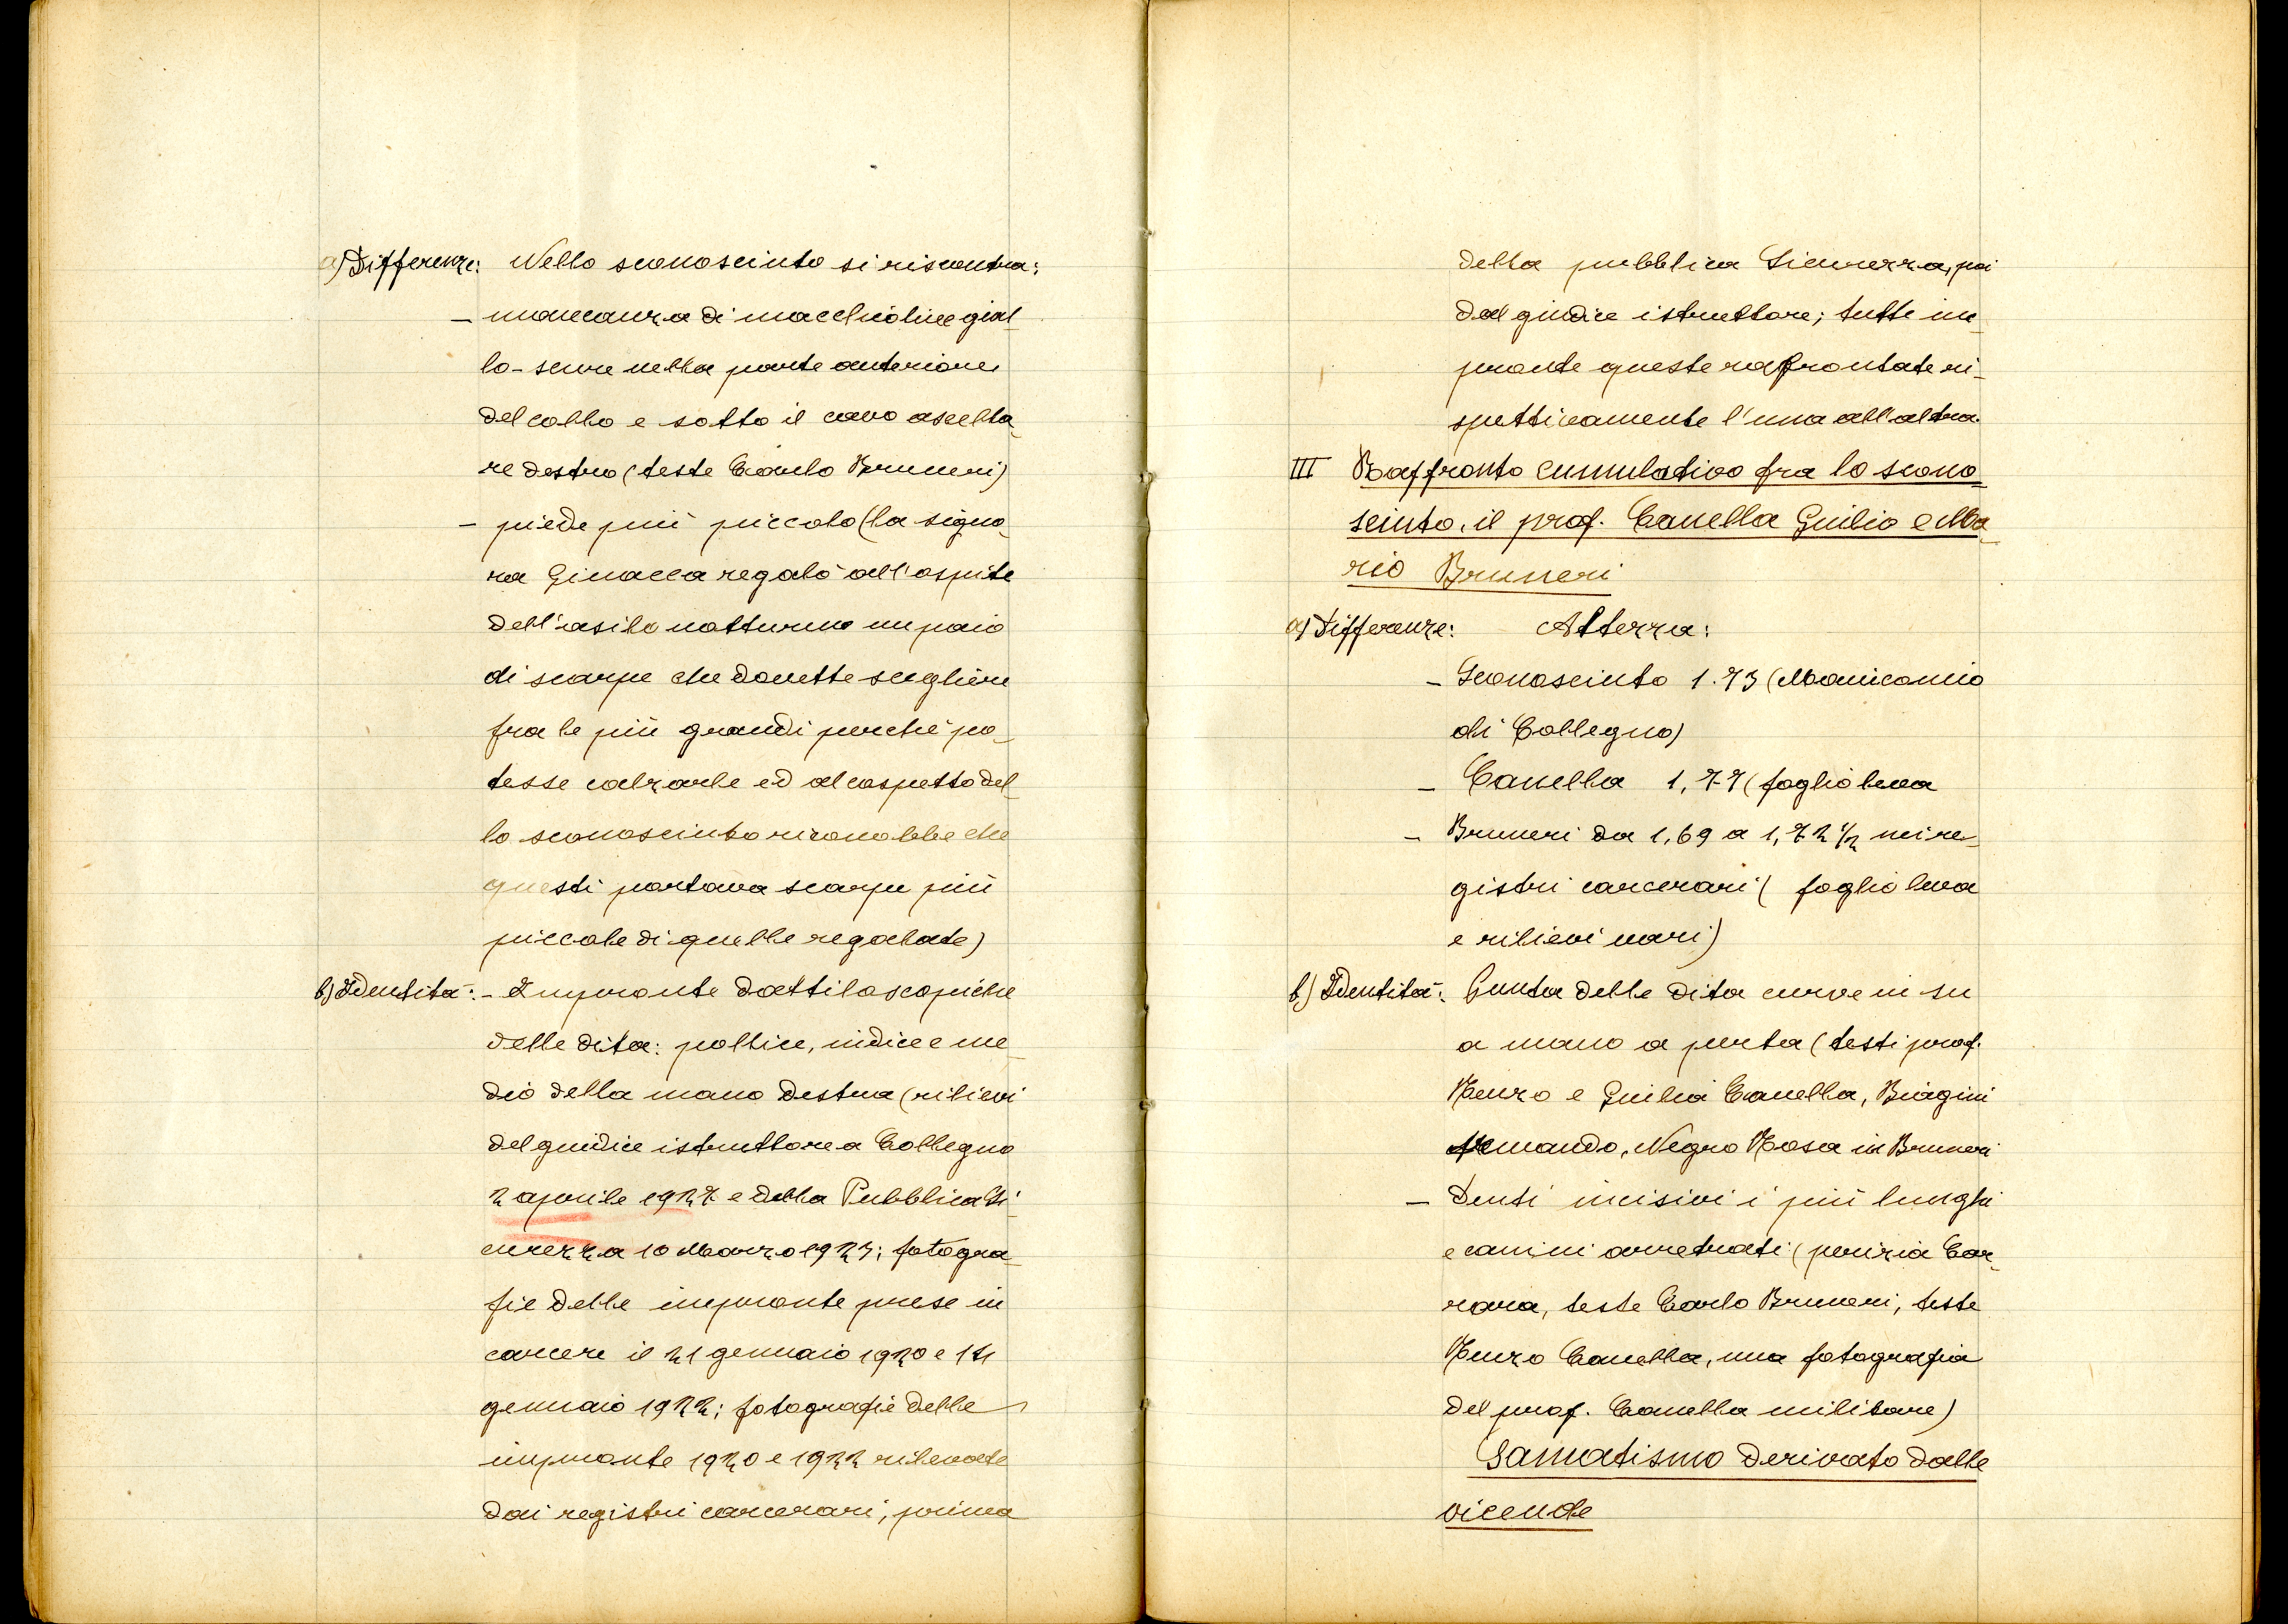 a) Differenze: Nello sconosciuto si riscontra:
- mancanza di macchioline gial
lo-scure nella parte anteriore
del collo e sotto il cavo ascella_
re destro (teste Carlo Bruneri)
- piede più piccolo (la signo_
ra Ginacca regalò all'ospite
dell'asilo notturno un paio
di scarpe che dovette scegliere
fra le più grandi perché po_
tesse calzarle ed al cospetto del_
lo sconosciuto riconobbe che
questi portava scarpe più
piccole di quelle regalate)
b) Identità: - Impronte dattiloscopiche
delle dita: pollice, indice e me_
dio della mano destra (rilievi
del giudice istruttore a Collegno
2 aprile 1927 e della Pubblica Si_
curezza 10 Marzo 1927; fotogra_
fie delle impronte prese in
carcere il 21 gennaio 1920 e 14
gennaio 1922; fotografie delle
impronte 1920 e 1922 rilevate
dai registri carcerari, prima
della pubblica Sicurezza, poi
dal giudice istruttore; tutte im_
pronte queste raffrontate ri_
spettivamente l'una all'altra.
III Raffronto cumulativo fra lo scono_
sciuto, il prof. Canella Giulio e Ma_
rio Bruneri
a) Differenze: Altezza:
- Sconosciuto 1.73 (Manicomio
di Collegno)
- Canella 1,77 (foglio leva
- Bruneri da 1,69 a 1,72 1/2 nei re_
gistri carcerari ( foglio leva
e rilievi vari)
b) Identità: Punta delle dita curve in su
a mano aperta (testi prof.
Renzo e Giulia Canella, Biagini
Armando, Negro Rosa in Bruneri
- Denti incisivi i più lunghi
e canini arretrati (perizia Car_
rara, teste Carlo Bruneri, teste
Renzo Canella, una fotografia
del prof. Canella militare)
Samatismo derivato dalle
vicende